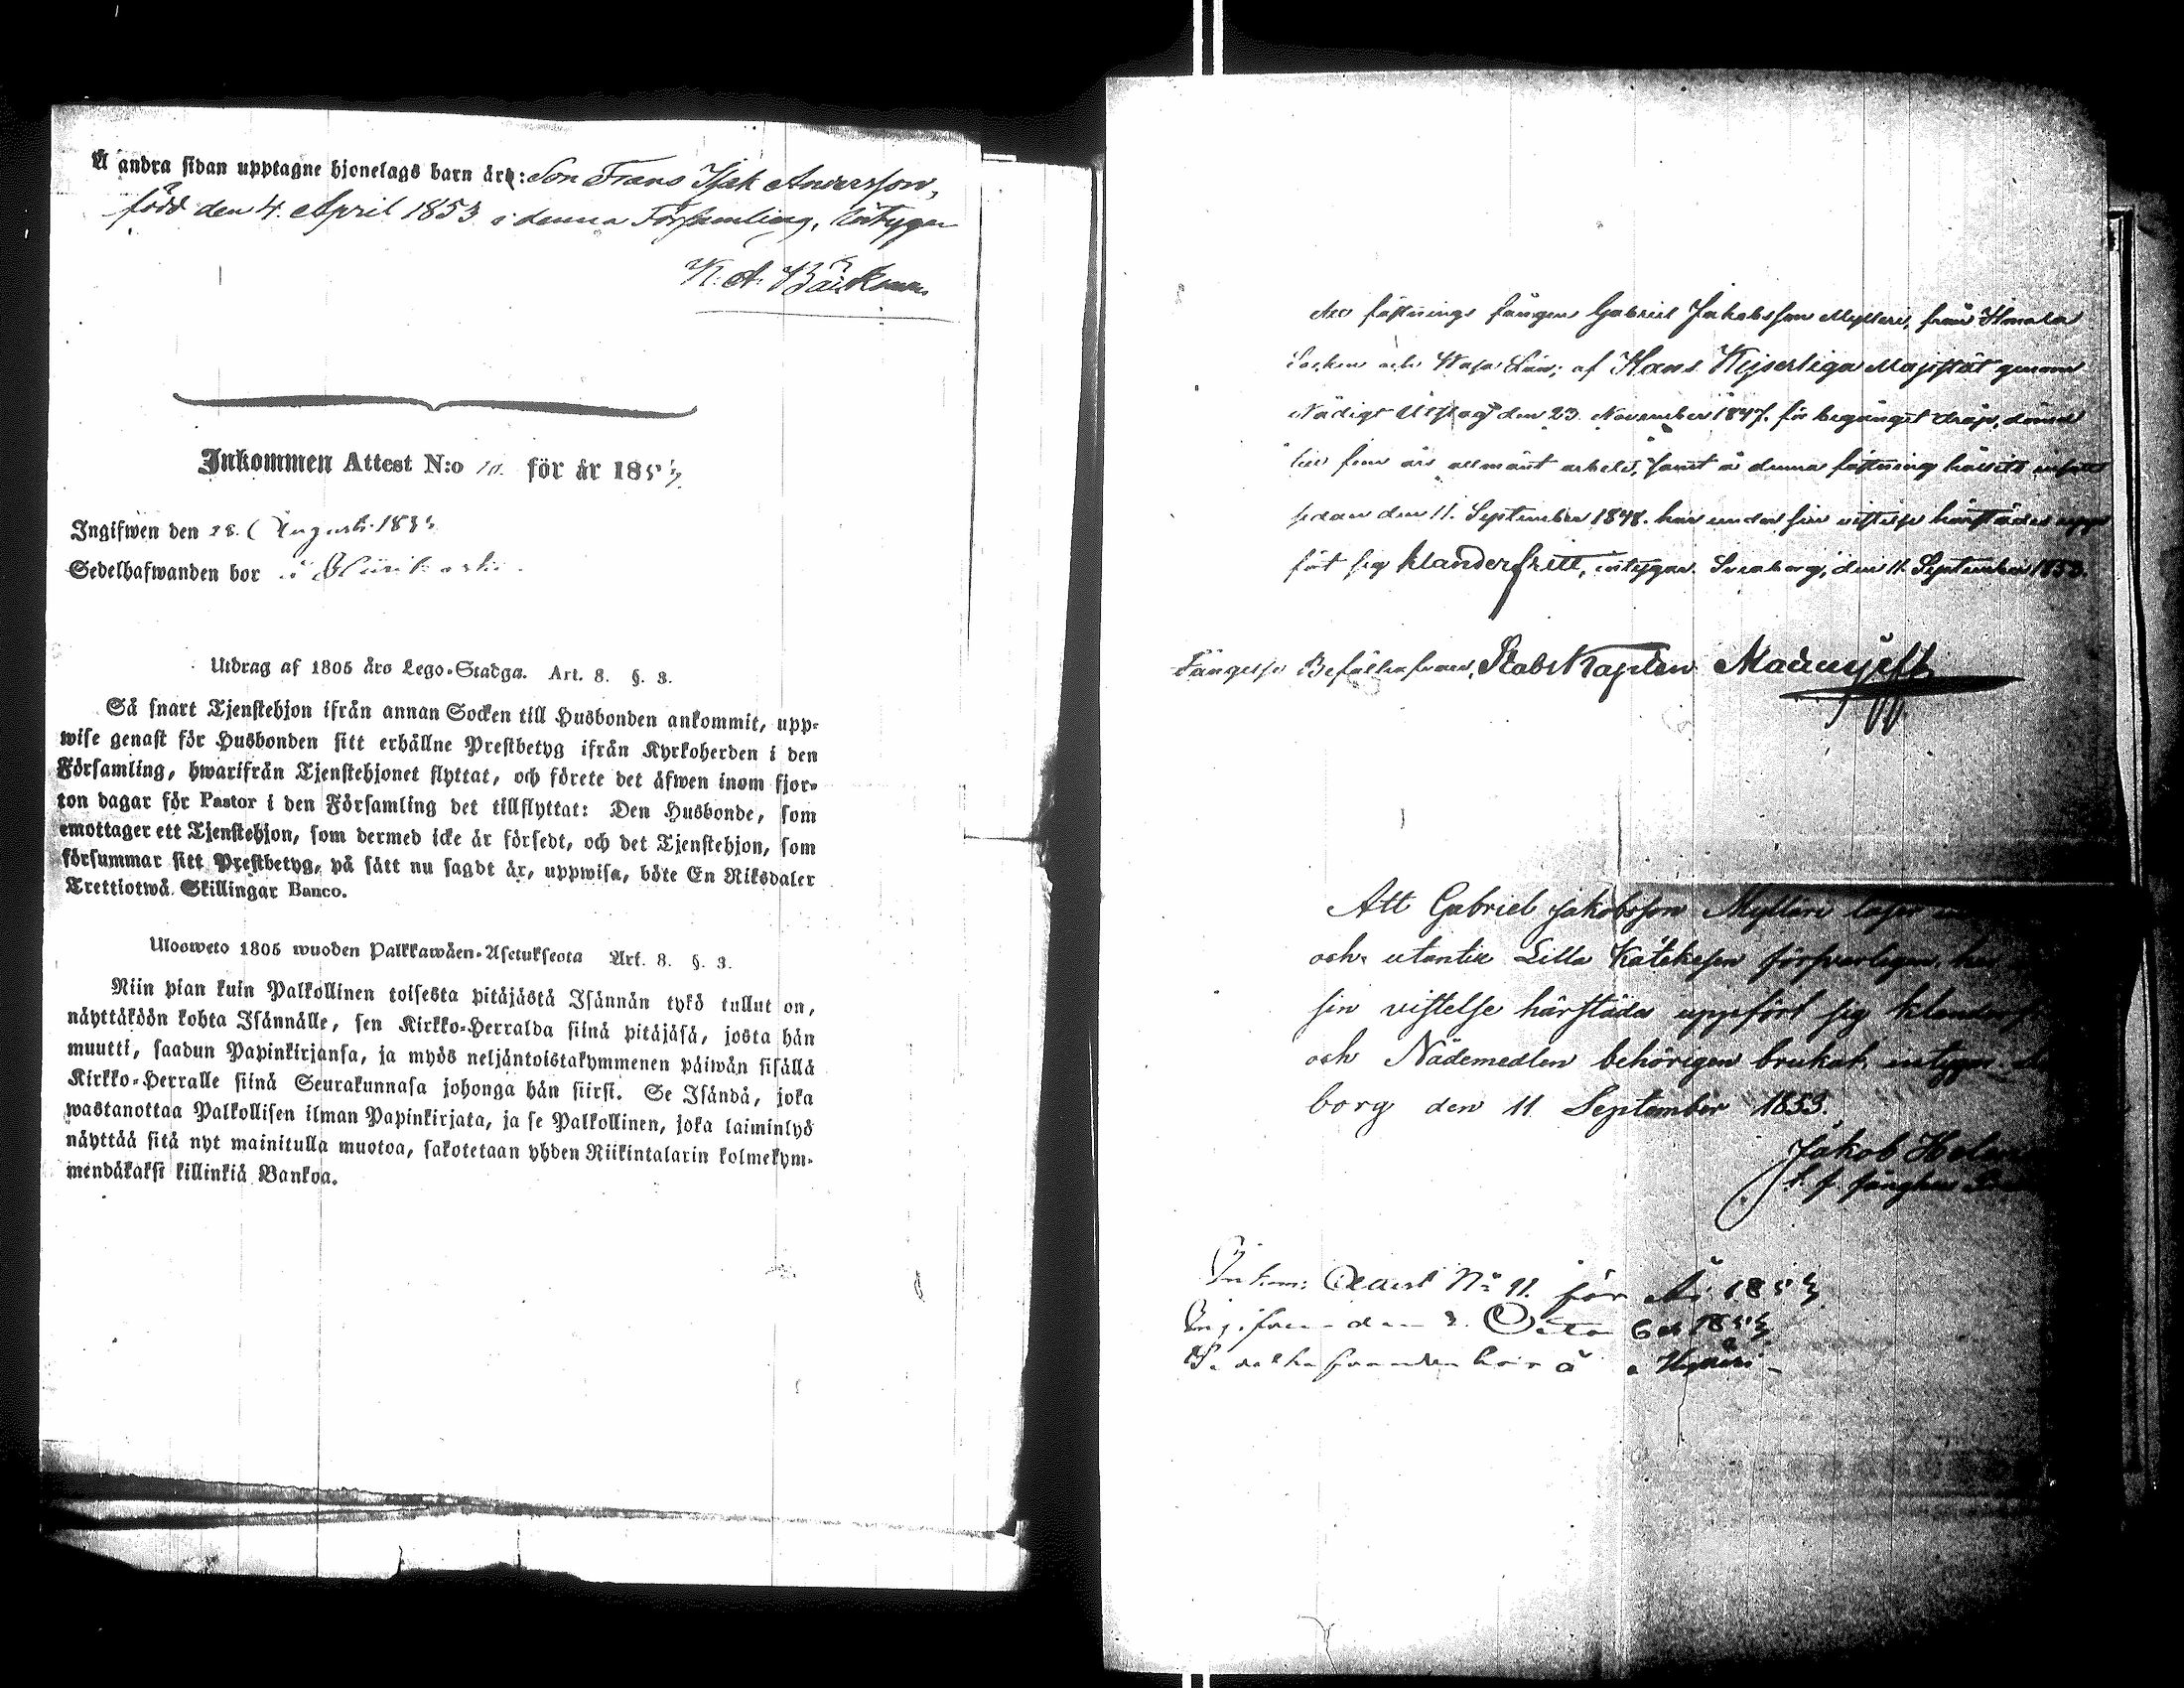 Å andra sidan upptagne hjonelags barn äro: Son Frans Isak Andersson,
född den 4. April 1853 i denna Församling, intygar
K. A. Bäckman
Inkommen Attest N:o 10. för år 1853
Ingifwen den 28. Augusti 1853
Sedelhafwanden bor
Utdrag af 1805 års Lego-Stadga. Art. 8. §. 3.
Så snart Tjenstehjon ifrån annan Socken till Husbonden ankommit, upp-
wise genast för Husbonden sitt erhållne Prestbetyg ifrån Kyrkoherden i den
Församling, hwarifrån Tjenstehjonet flyttat, och förete det äfwen inom fjor-
ton dagar för Pastor i den Församling det tillflyttat: Den Husbonde, som
emottager ett Tjenstehjon, som dermed icke är försedt, och det Tjenstehjon, som
försummar sitt Prestbetyg, på sätt nu sagdt är, uppwisa, böte En Riksdaler
Trettiotwå Skillingar Banco.
Ulosweto 1805 wuoden Palkkawäen-Asetuksesta Art. 8. §. 3.
Niin pian kuin Palkollinen toisesta pitäjästä Isännän tykö tullut on,
näyttäköön kohta Isännälle, sen Kirkko-Herralda siinä pitäjäsä, josta hän
muutti, saadun Papinkirjansa, ja myös neljäntoistakymmenen päiwän sisällä
Kirkko-Herralle siinä Seurakunnasa johonga hän siirsi. Se Isändä, joka
wastanottaa Palkollisen ilman Papinkirjata, ja se Palkollinen, joka laiminlyö
näyttää sitä nyt mainitulla muotoa, sakotetaan yhden Riikintalarin kolmekym-
mendäkaksi killinkiä Bankoa.
fästnings fången Gabriel Jakobsson Mylläri, från Ilmola
Socken och Wasa Län; af Hans Kejserliga Majestät genom
Nådigt Utslag den 23. November 1847. för begånget dråp, dömd
till fem års allmänt arbete, samt å denna fästning
sedan den 11. September 1848. har under sin vistelse härstädes upp
fört sig klanderfritt, intygar. Sveaborg, den 11 September 1853.
Fångelse Befälhafvare, StabsKapten
Att Gabriel Jakobsson Mylläri läser
och utantill Lilla Katekesen försvarligen, har
sin vistelse härstädes uppfört sig
och Nådemedlen behörigen brukat, intygar.
borg den 11 September 1853.
Jakob
Inkom: Attest No 11. för År 1853
Ingifven den 2. October 1853
Sedelhafvanden bor å Mylläri